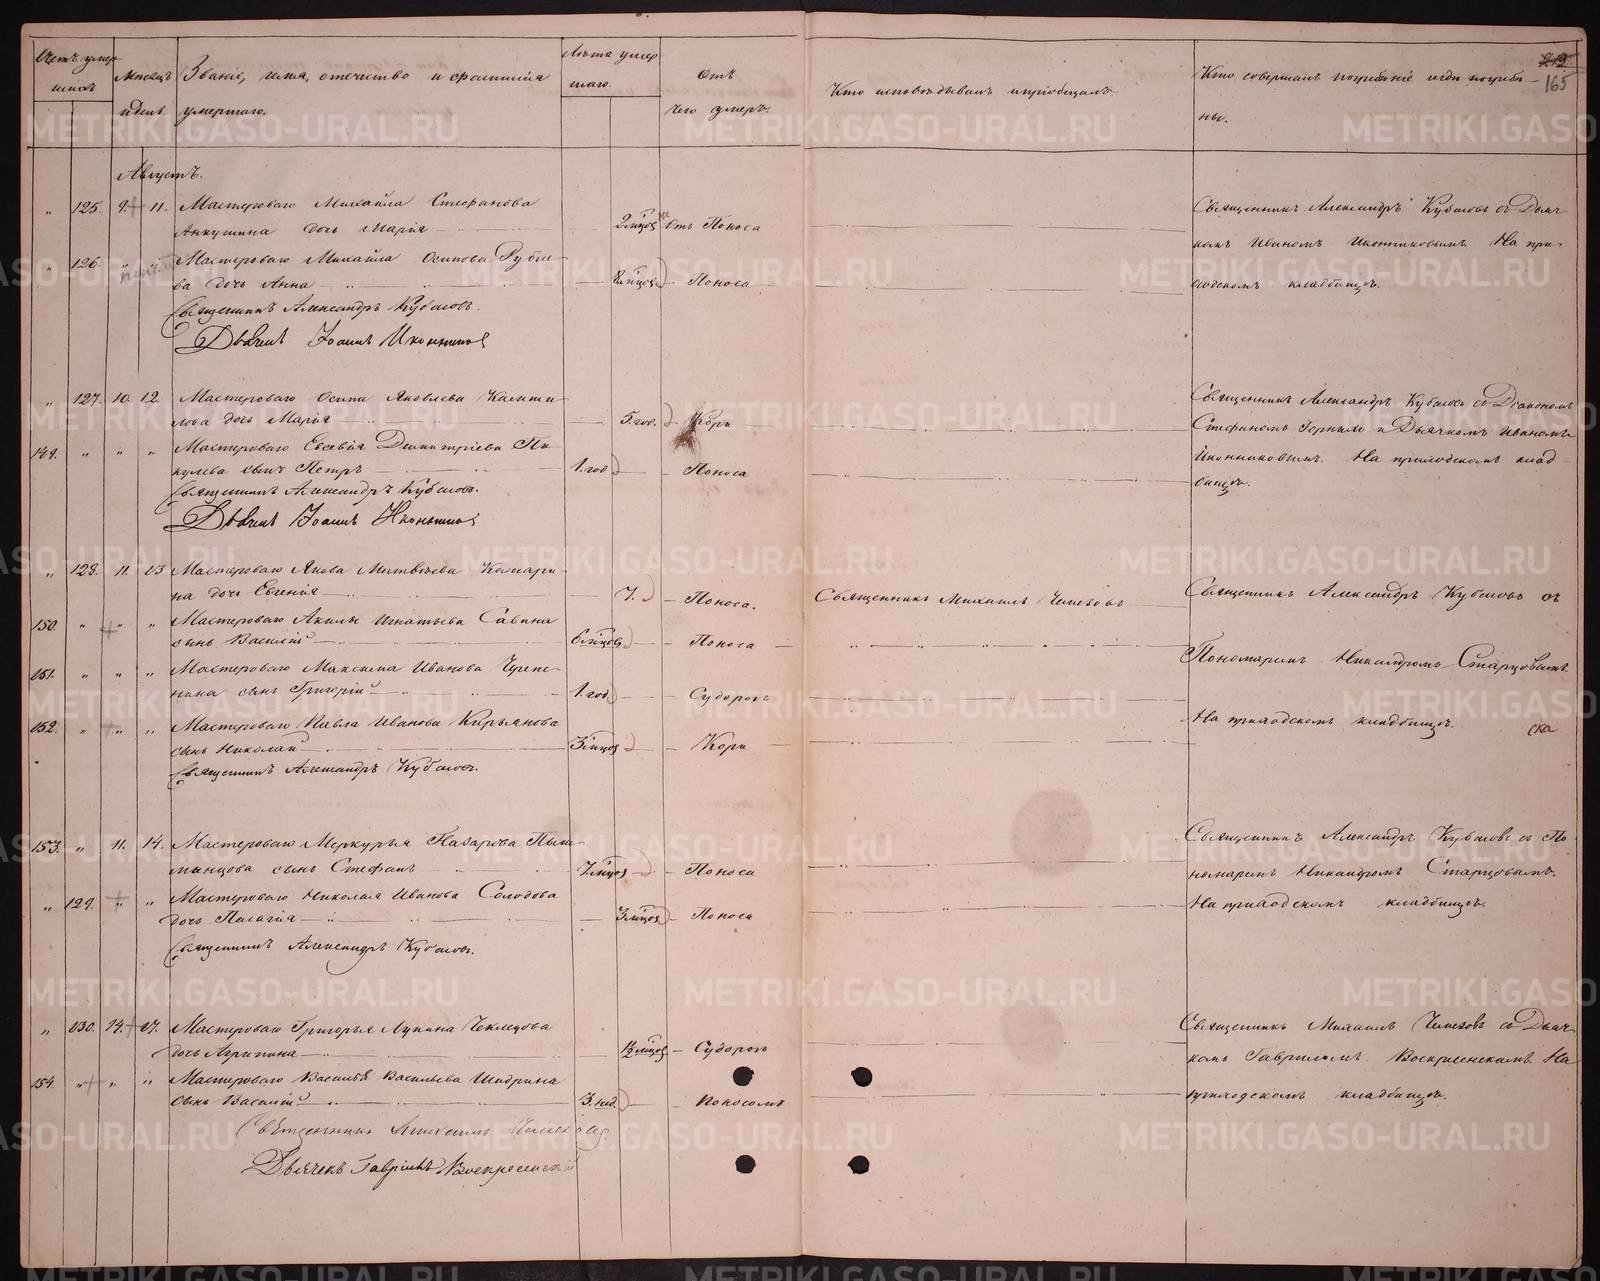 Счетъ умер
шихъ
Мѣсяцъ
и день.
Званіе, имя, отечество и фамилія
умершаго.
Лѣта умер
шаго.
Отъ
чего умеръ.
Кто исповѣдывалъ и пріобщалъ.
Кто совершалъ погребеніе и гдѣ погребе-
ны.
219
165
Августъ.
„ 125. 9. 11. Мастероваго Михаила Стефанова
дочь Марія 2 мѣсцовъ Отъ Поноса
Священникъ Александръ Кубасовъ съ Дьяч-
комъ Иваномъ Иконниковымъ. На при-
ходскомъ кладбищѣ.
„ 126. „ „ Мастероваго Михаила Осипова Рубле-
ва дочь Анна 8 мѣсцовъ Поноса
Священникъ Александръ Кубасовъ.
Дьячекъ Іоаннъ Иконниковъ
„ 127. 10. 12. Мастероваго Осипа Яковлева
дочь Марія 5. год. Кори
Священникъ Александръ Кубасовъ съ Діакономъ
Стефаномъ и Дьячкомъ Иваномъ
Иконниковымъ. На приходскомъ клад-
бищѣ.
149. „ „ „ Мастероваго Евсевія Димитріева Пи
кулева сынъ Петръ 1. год Поноса
Священникъ Александръ Кубасовъ.
Дьячекъ Іоаннъ Иконниковъ
„ 128. 11. 13. Мастероваго Якова Матвѣева
на дочь Евгенія 7. Поноса. Священникъ Михаилъ Чипезовъ
Священникъ Александръ Кубасовъ съ
Пономаремъ Никандромъ Старцовымъ.
На приходскомъ кладбищѣ.
150. „ „ „ Мастероваго Акилы Игнатьева Савина
сынъ Василій 6 мѣсцовъ Поноса
151. „ „ „ Мастероваго Максима Иванова Черепе-
нина сынъ Григорій 1. год Судорогъ
152. „ „ „ Мастероваго Павла Иванова Кирьянова
сынъ Николай 3 мѣсцовъ Кори
ска
Священникъ Александръ Кубасовъ.
153. „ 11. 14. Мастероваго Меркурья Назарова Пыш-
минцова сынъ Стефанъ 7 мѣсцов Поноса
Священникъ Александръ Кубасовъ съ По
номаремъ Никандромъ Старцовымъ.
На приходскомъ кладбищѣ.
„ 129. „ „ Мастероваго Николая Иванова Солодова
дочь Пелагія 3 мѣсцов Поноса
Священникъ Александръ Кубасовъ.
„ 130. 14. 17. Мастероваго Григорья Лукина Чеклецова
дочь Агрипина мѣсцов Судорогъ
Священникъ Михаилъ Чипезовъ съ Дьяч-
комъ Гавриломъ Воскресенскимъ. На
приходскомъ кладбищѣ.
154. „ „ „ Мастероваго Василья Васильева Шадрина
сынъ Василій 3. нед. Поносомъ
Священникъ Михаилъ Чипезовъ
Дьячекъ Гавріилъ Воскресенскій
METRIKI.GASO-URAL.RU